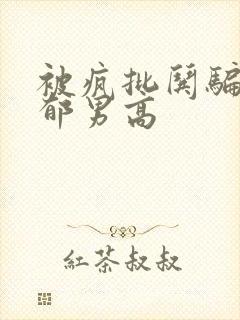 被疯批闺骗
郁男高
紅茶叔叔